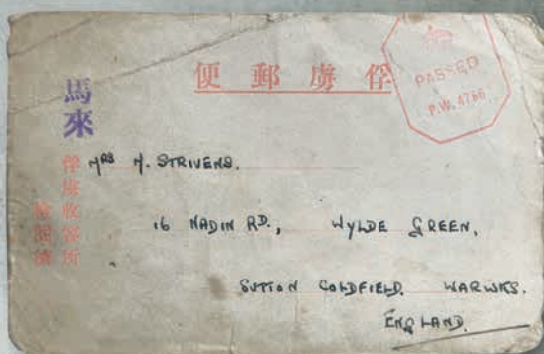 俘虜郵便
PASSED
P.W. 4766
馬來
俘虜收容所
檢閲濟
MRS M. STRIVENS.
16 NADIN RD., WYLDE GREEN,
SUTTON COLDFIELD. WARWKS.
ENGLAND.